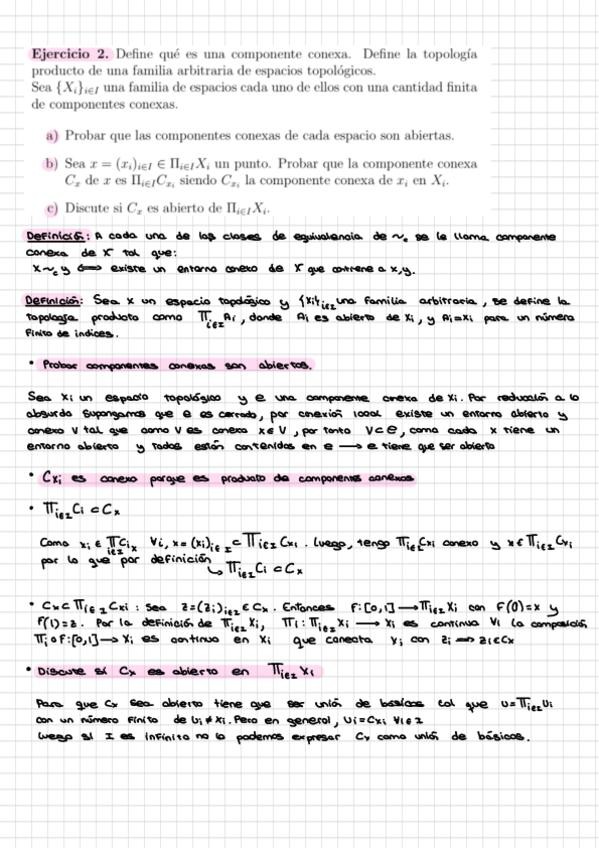 Ejercicio 2. Define qué es una componente conexa. Define la topología
producto de una familia arbitraria de espacios topológicos.
Sea {X_i}_{i∈I} una familia de espacios cada uno de ellos con una cantidad finita
de componentes conexas.
a) Probar que las componentes conexas de cada espacio son abiertas.
b) Sea x = (x_i)_{i∈I} ∈ Π_{i∈I}X_i un punto. Probar que la componente conexa
C_x de x es Π_{i∈I}C_{x_i} siendo C_{x_i} la componente conexa de x_i en X_i.
c) Discute si C_x es abierto de Π_{i∈I}X_i.
Definición: A cada una de las clases de equivalencia de ~c se le llama componente
conexa de X tal que:
x ~c y ⟺ existe un entorno conexo de X que contiene a x,y.
Definición: Sea X un espacio topológico y {Xi}i∈I una familia arbitraria, se define la
topología producto como Πi∈I Ai, donde Ai es abierto de Xi, y Ai=Xi para un número
finito de indices.
• Probar componentes conexas son abiertos.
Sea Xi un espacio topológico y e una componente conexa de Xi. Por reducción a lo
absurdo supongamos que e es cerrado, por conexión local existe un entorno abierto y
conexo V tal que como V es conexo x∈V, por tanto V⊂e, como cada x tiene un
entorno abierto y todos están contenidos en e → e tiene que ser abierto
• Cxi es conexo porque es producto de componentes conexos
• Πi∈I Ci ⊂ Cx
Como xi ∈ Πi∈I Cix ∀i, x=(xi)i∈I ⊂ Πi∈I Cxi. Luego, tengo Πi∈I Cxi conexo y x∈Πi∈I Cxi
por lo que por definición
↳ Πi∈I Ci ⊂ Cx
• Cx⊂Πi∈I Cxi: Sea z=(zi)i∈I ∈ Cx. Entonces f:[0,1]→Πi∈I Xi con f(0)=x y
f(1)=z. Por la definición de Πi∈I Xi, Πi: Πi∈I Xi → Xi es continua ∀i la composición
Πi∘f:[0,1]→Xi es continua en Xi que conecta xi con zi ⟹ zi∈Cx
• Discute si Cx es abierto en Πi∈I Xi
Para que Cx sea abierto tiene que ser unión de básicos tal que U=Πi∈I Ui
con un número finito de Ui≠Xi. Pero en general, Ui=Cxi ∀i∈I
luego si I es infinito no lo podemos expresar Cx como unión de básicos.